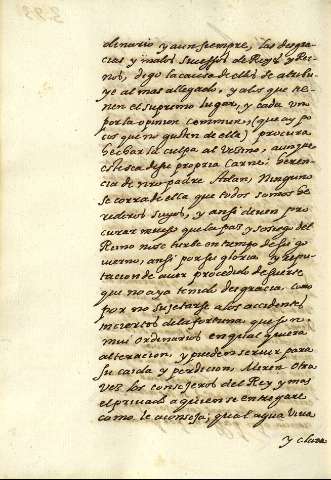 dinario y aun siempre, las desgra
cias y malos sucessos de Reyes y Rei
nos, digo la causa de ellos se atribu
ye al mas allegado, y a los que tie
nen el supremo lugar, y cada un
por la opinion commun, (que ay po
cos que no gusten de ella) procura
hechar la culpa al vezino, aunque
esta sea de su propria carne, heren
cia de nro padre Adan, Ninguno
se corra de ella que todos somos he
rederos suyos, y ansi deven pro
curar mucho que la paz y sosiego del
Reino no se turbe en tiempo de su go
vierno, ansi por su gloria y repu
tacion de aver procedido de suerte
que no aya tenido desgracia, como
por no sujetarse a los accidentes
inciertos de la fortuna, que son
mui ordinarios en qualquiera
alteracion, y pueden servir para
su caida y perdicion, Miren otra
vez los consejeros del Rey y mas
el privado a quien se entregare
como le aconseja, que al agua viva
y clara